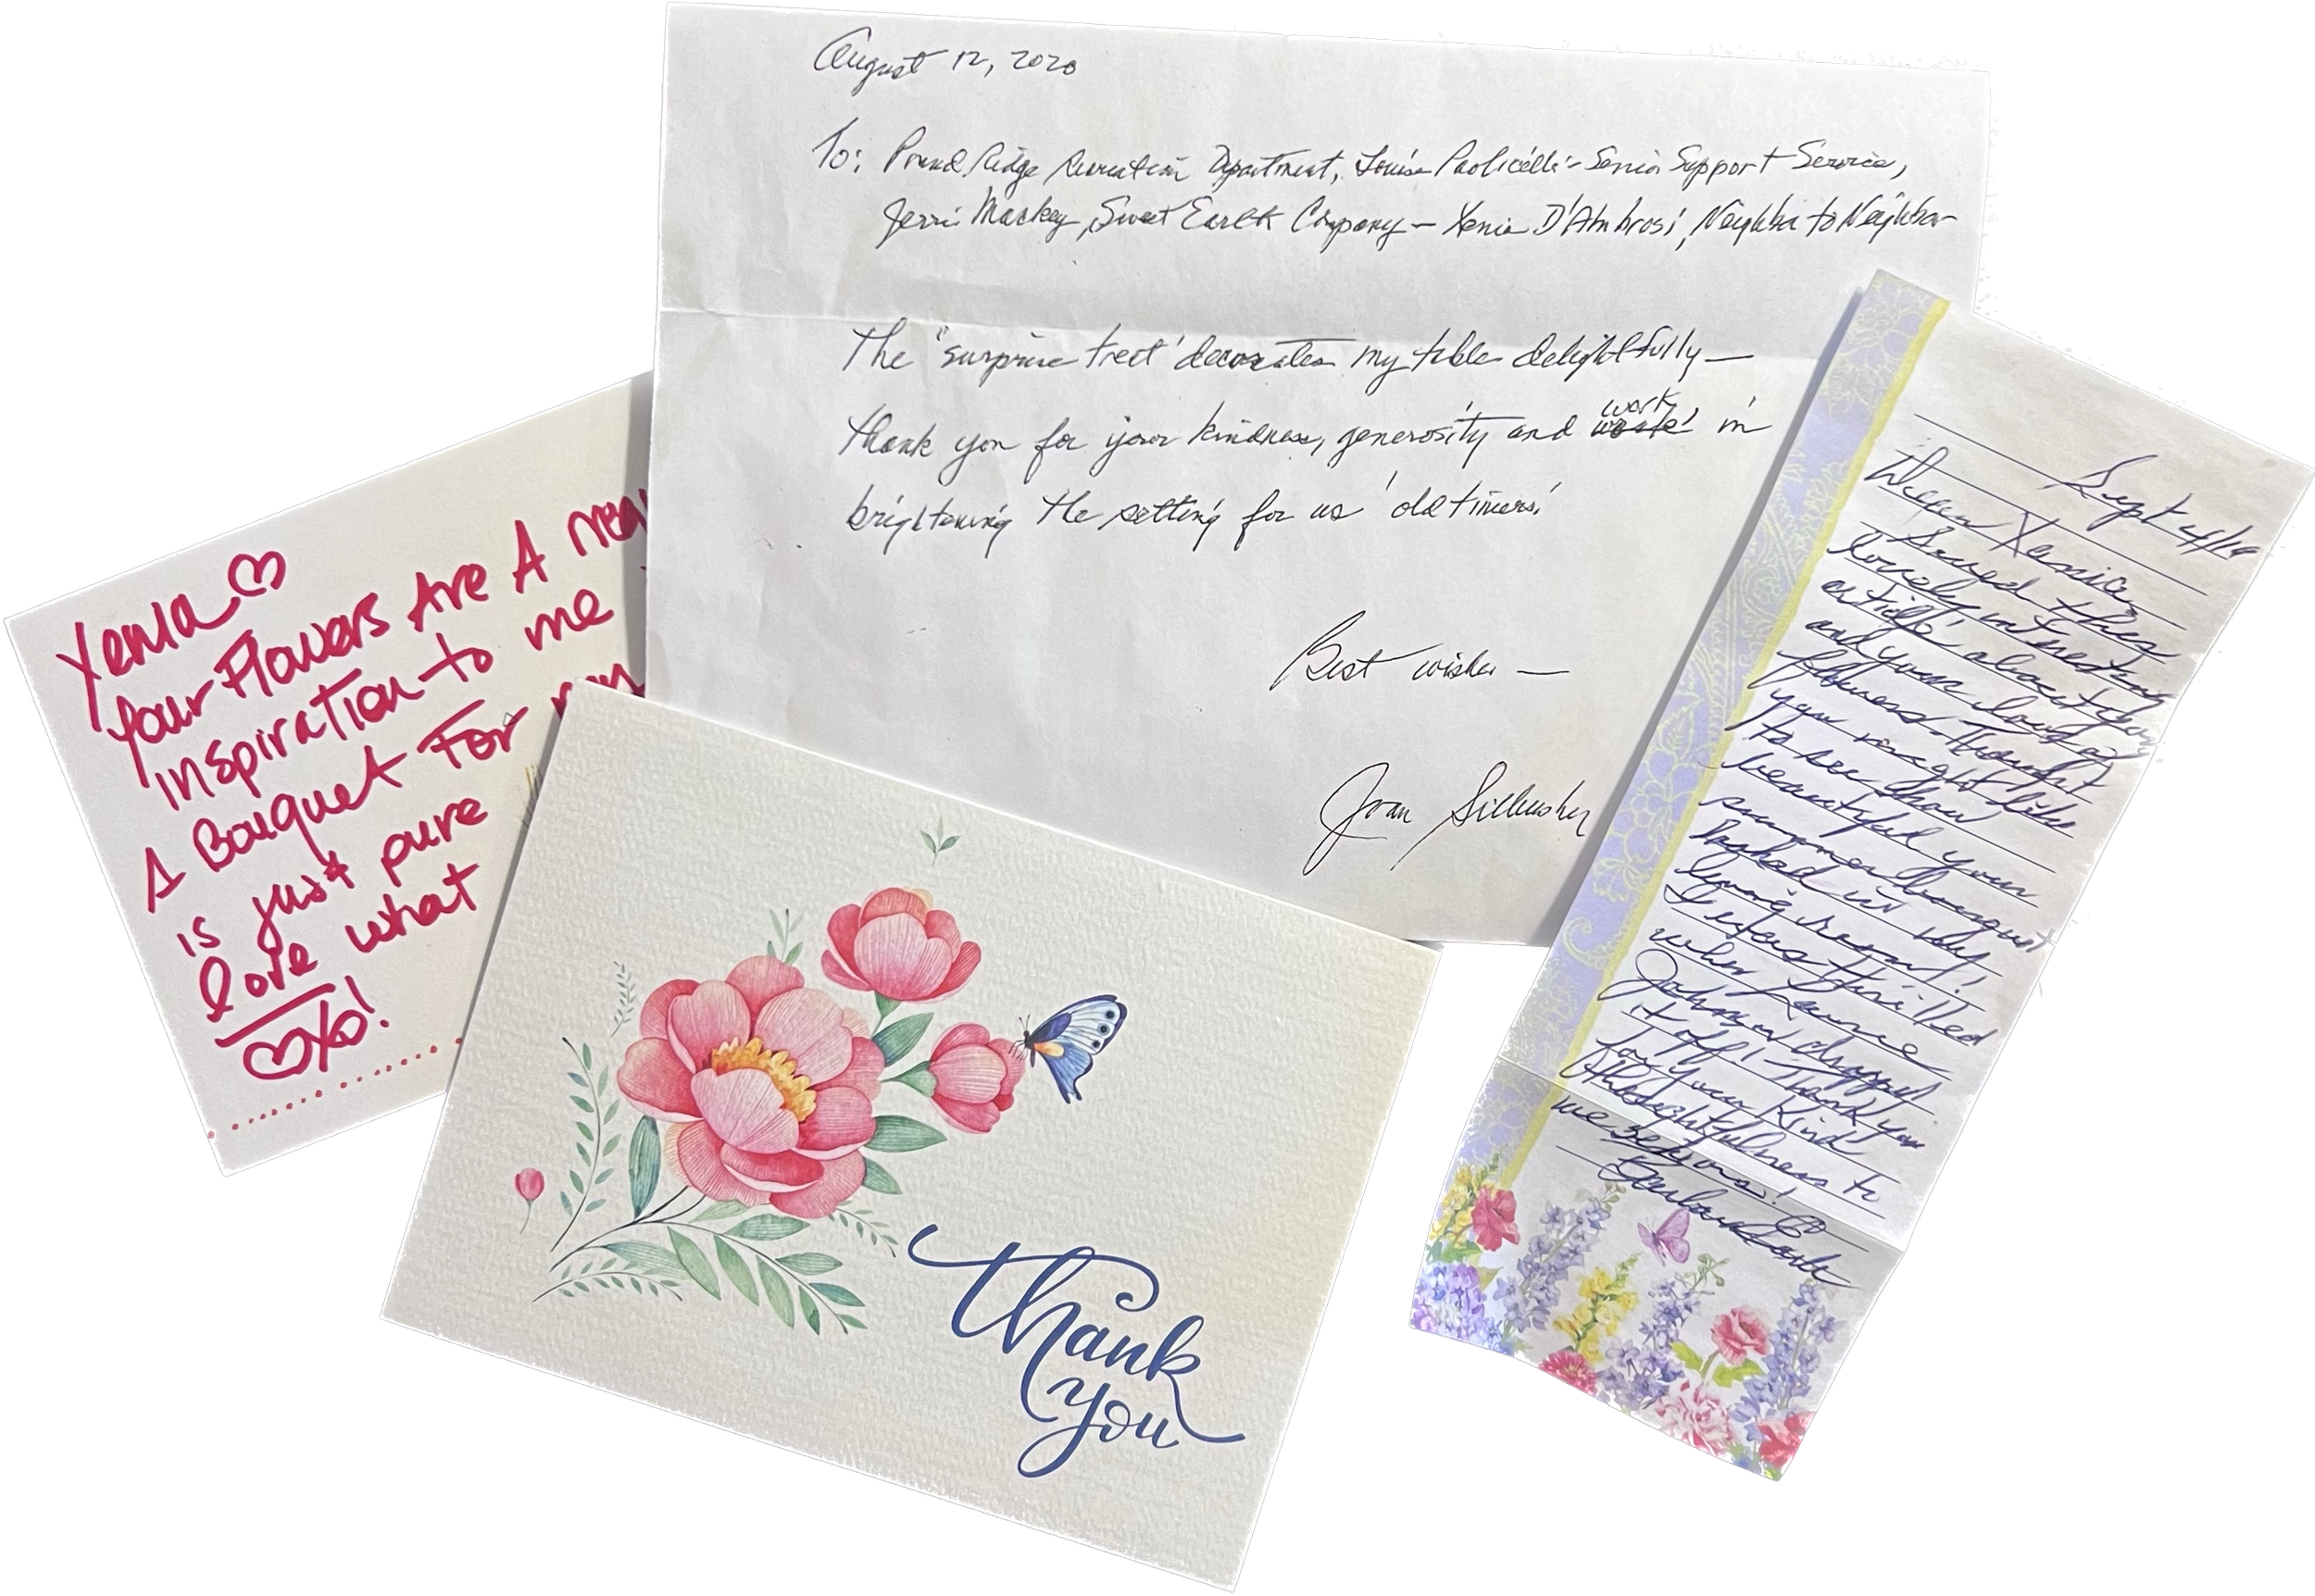 August 12, 2020
To: Pound Ridge Recreation Department, Louise Paolicelli - Senior Support Service,
Jerri Mackey, Sweet Earth Company — Xenia D'Ambrosi, Neighbor to Neighbor
The "surprise treat' decorates my table delightfully —
Thank you for your kindness, generosity and work in
brightening the setting for us 'old timers'
Best wishes —
Joan
Xenia
Your Flowers Are A
inspiration to me
A Bouquet For
is just pure
love what
XO!
thank
you
Sept
Dear Xenia,
Saved this
lovely, interesting
article about you
and your
flowers. Thought
you might like
to see how
beautiful your
summer bouquet
looked in my
living room!
I was thrilled
when Laurie
Johnson dropped
it off! Thank you
for your kind
thoughtfulness to
we seniors!
Barbara